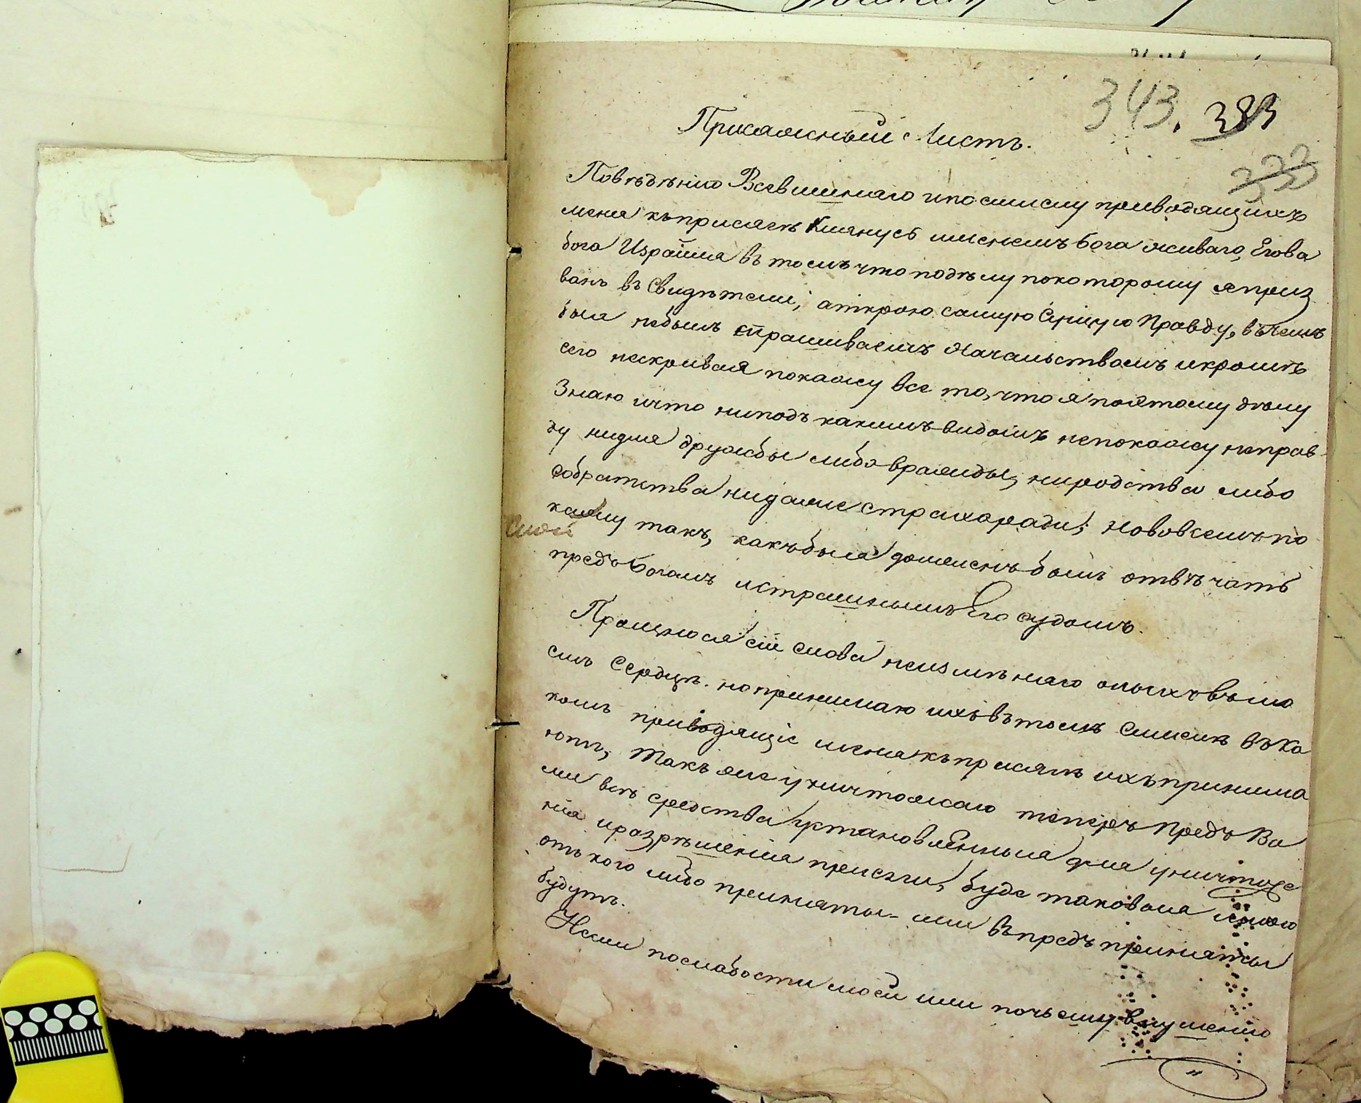 343. 383
333
Присяжный Листъ.
Повѣдѣнию Всевышнаго и по смыслу приводящихъ
меня къ присягѣ Клянусь именемъ Бога живаго, Егова
бога Израиля въ томъ что по дѣлу по которому я приз
ванъ въ Свидѣтели, аткрою самую Сущую Правду, въ чемъ
бы я небылъ спрашиваемъ Начальствомъ и кромѣ
сего нескрывая покажу все то, что я по этому дѣлу
Знаю и что ни подъ какимъ видомъ непокажу неправ-
ду ни для дружбы либо вражды, ни родства либо
собратства ни даже страха ради; Но во всемъ по
кажу такъ, какъ бы я долженъ былъ отвѣчать
моей
предъ Богомъ и страшнымъ Его судомъ.
Произнося сіи слова неизмѣняю оныхъ въ мо
емъ Сердцѣ. но принимаю ихъ въ томъ смыслѣ въ ка
комъ приводящіе меня къ присягѣ ихъ принима
ютъ, такъ же уничтожаю теперь предъ Ва
ми всѣ средства установленныя для уничтоже
нія и разрѣшенія присяги, буде таковыя мною
отъ кого либо приняты- или въ предъ приняты
будутъ.
Если по слабости моей или по чьему внушению